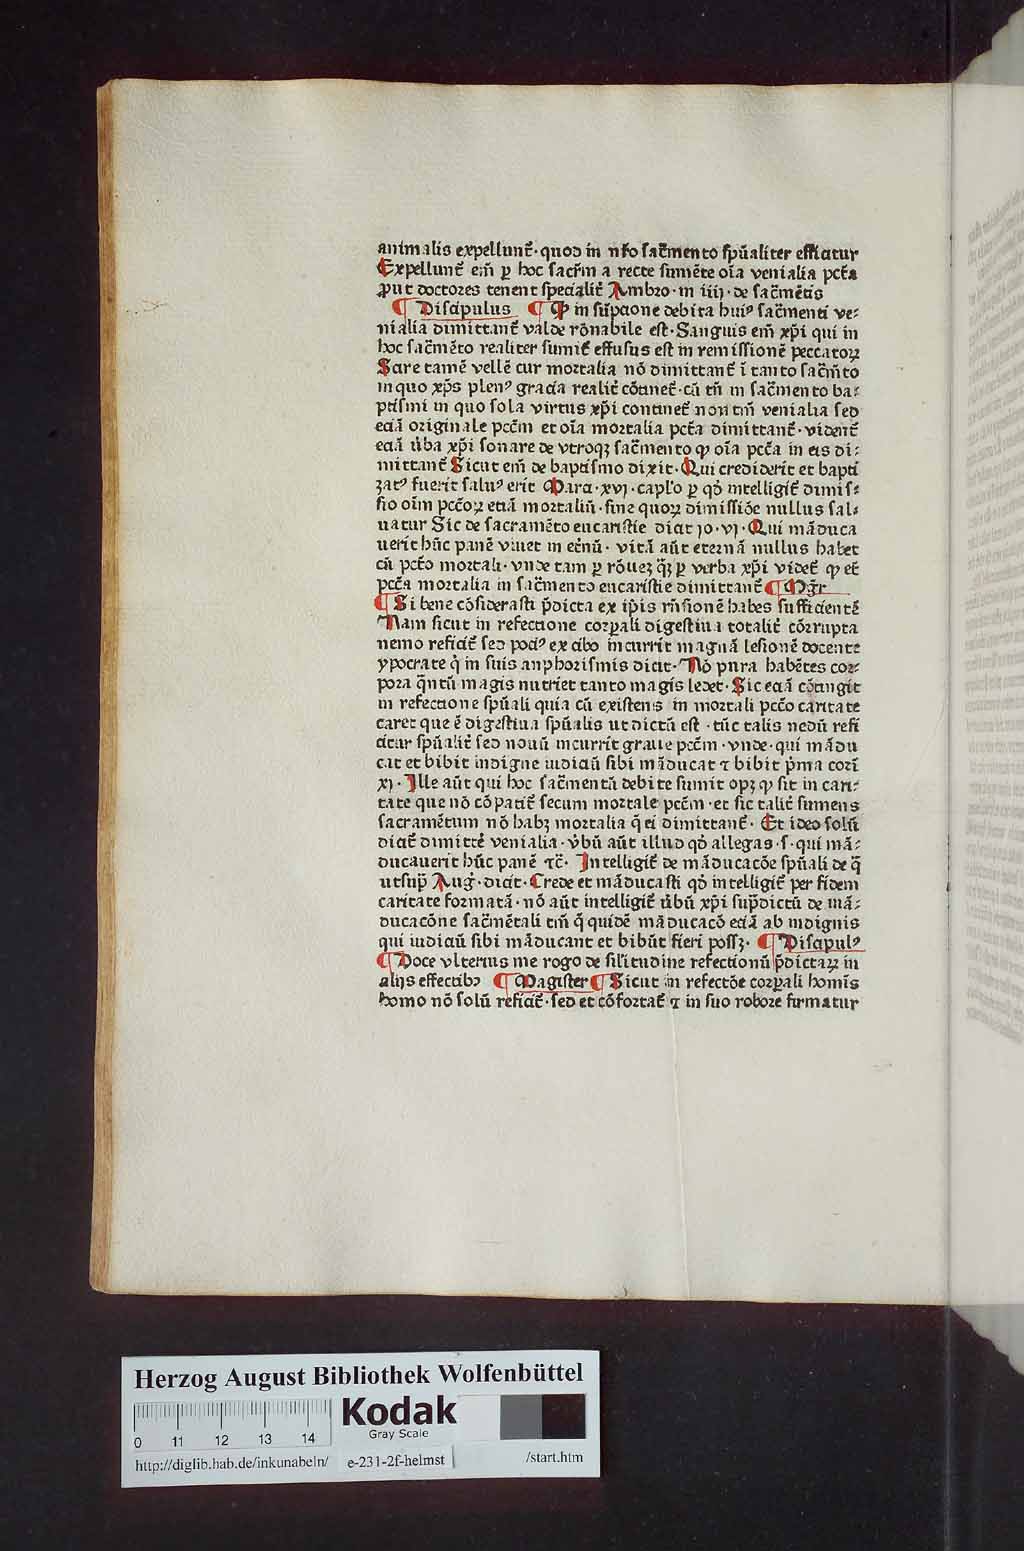 animalis expellunt̃· quod in nr̃o sac̃mento spũaliter efficitur
Expellunt̃ em̃ ꝑ hoc sacr̃m a recte sumẽte oĩa venialia pctã
ꝓut doctores tenent specialit̃ Ambro· in iiij· de sac̃mẽtis
¶ Discipulus ¶ Ꝙ in sũpcione debita huiꝰ sac̃menti ve⸗
nialia dimittant̃ valde rõnabile est· Sanguis em̃ xp̃i qui in
hoc sac̃mẽto realiter sumit̃ effusus est in remissionẽ peccatoꝝ
Scire tamẽ vellẽ cur mortalia nõ dimittant̃ ĩ tanto sac̃m̃to
in quo xp̃s plenꝰ gracia realit̃ cõtinet̃· cũ tñ in sac̃mento ba⸗
ptismi in quo sola virtus xp̃i continet̃ non tm̃ venialia sed
eciã originale pccm̃ et oĩa mortalia pctã dimittant̃· vident̃
eciã v̾ba xp̃i sonare de vtroqꝫ sac̃mento ꝙ oĩa pctã in eis di⸗
mittant̃ Sicut em̃ de baptismo dixit· Qui crediderit et bapti
zatꝰ fuerit saluꝰ erit Marci· xvj· capl'o ꝑ qd̾ intelligit̃ dimis⸗
sio oĩm pcc̃oꝝ etiã mortaliũ· sine quoꝝ dimissiõe nullus sal⸗
uatur Sic de sacramẽto eucaristie dicit jo· vj· Qui mãduca
uerit hũc panẽ viuet in et̾nũ· vitã aũt eternã nullus habet
cũ pctõ mortali· vnde tam ꝑ rõuez q̃ꝫ ꝑ verba xp̃i videt̃ ꝙ et̃
pctã mortalia in sac̃mento eucaristie dimittant̃ ¶ Mgr̃
¶ Si bene cõsiderasti p̃dicta ex ip̃is rñsionẽ habes sufficientẽ
Nam sicut in refectione corꝑali digestiua totalit̃ cõrrupta
nemo reficit̃ sed pociꝰ ex cibo incurrit magnã lesionẽ docente
ypocrate q̃ in suis anphorismis dicit· Nõ pura habẽtes cor⸗
pora q̃ntũ magis nutriet tanto magis ledet· Sic eciã cõtingit
in refectione spũali quia cũ existens in mortali pccõ caritate
caret que ẽ digestiua spũalis ut dictũ est· tũc talis nedũ refi
citur spũalit̃ sed nouũ incurrit graue pccm̃· vnde· qui mãdu
cat et bibit indigne iudiciũ sibi mãducat ⁊ bibit p̃ma corĩ
xj· Ille aũt qui hoc sac̃mentũ debite sumit opꝫ ꝙ sit in cari⸗
tate que nõ cõpatit̃ secum mortale pccm̃· et sic talit̃ sumens
sacramẽtum nõ habꝫ mortalia q̃ ei dimittant̃· Et ideo solũ
dicit̃ dimitte̾ venialia· v̾bũ aũt illud qd̾ allegas· s· qui mã⸗
ducauerit hũc panẽ ⁊c̃· Intelligit̃ de mãducacõe spũali de q̃
utsup̃ Aug̾· dicit· Crede et mãducasti qd̾ intelligit̃ per fidem
caritate formatã· nõ aũt intelligit̃ v̾bũ xp̃i sup̃dictũ de mã⸗
ducacõne sac̃mẽtali tm̃ q̃ quidẽ mãducacõ eciã ab indignis
qui iudiciũ sibi mãducant et bibũt fieri possꝫ· ¶ Discipulꝰ
¶ Doce vlterius me rogo de sil̃itudine refectionũ p̃dictaꝝ in
alijs effectibꝫ ¶ Magister ¶ Sicut in refectõe corꝑali homĩs
homo nõ solũ reficit̃· sed et cõfortat̃ ⁊ in suo robore firmatur
Herzog August Bibliothek Wolfenbüttel
Kodak
Gray Scale
0 11 12 13 14
http://diglib.hab.de/inkunabeln/ e-231-2f-helmst /start.htm